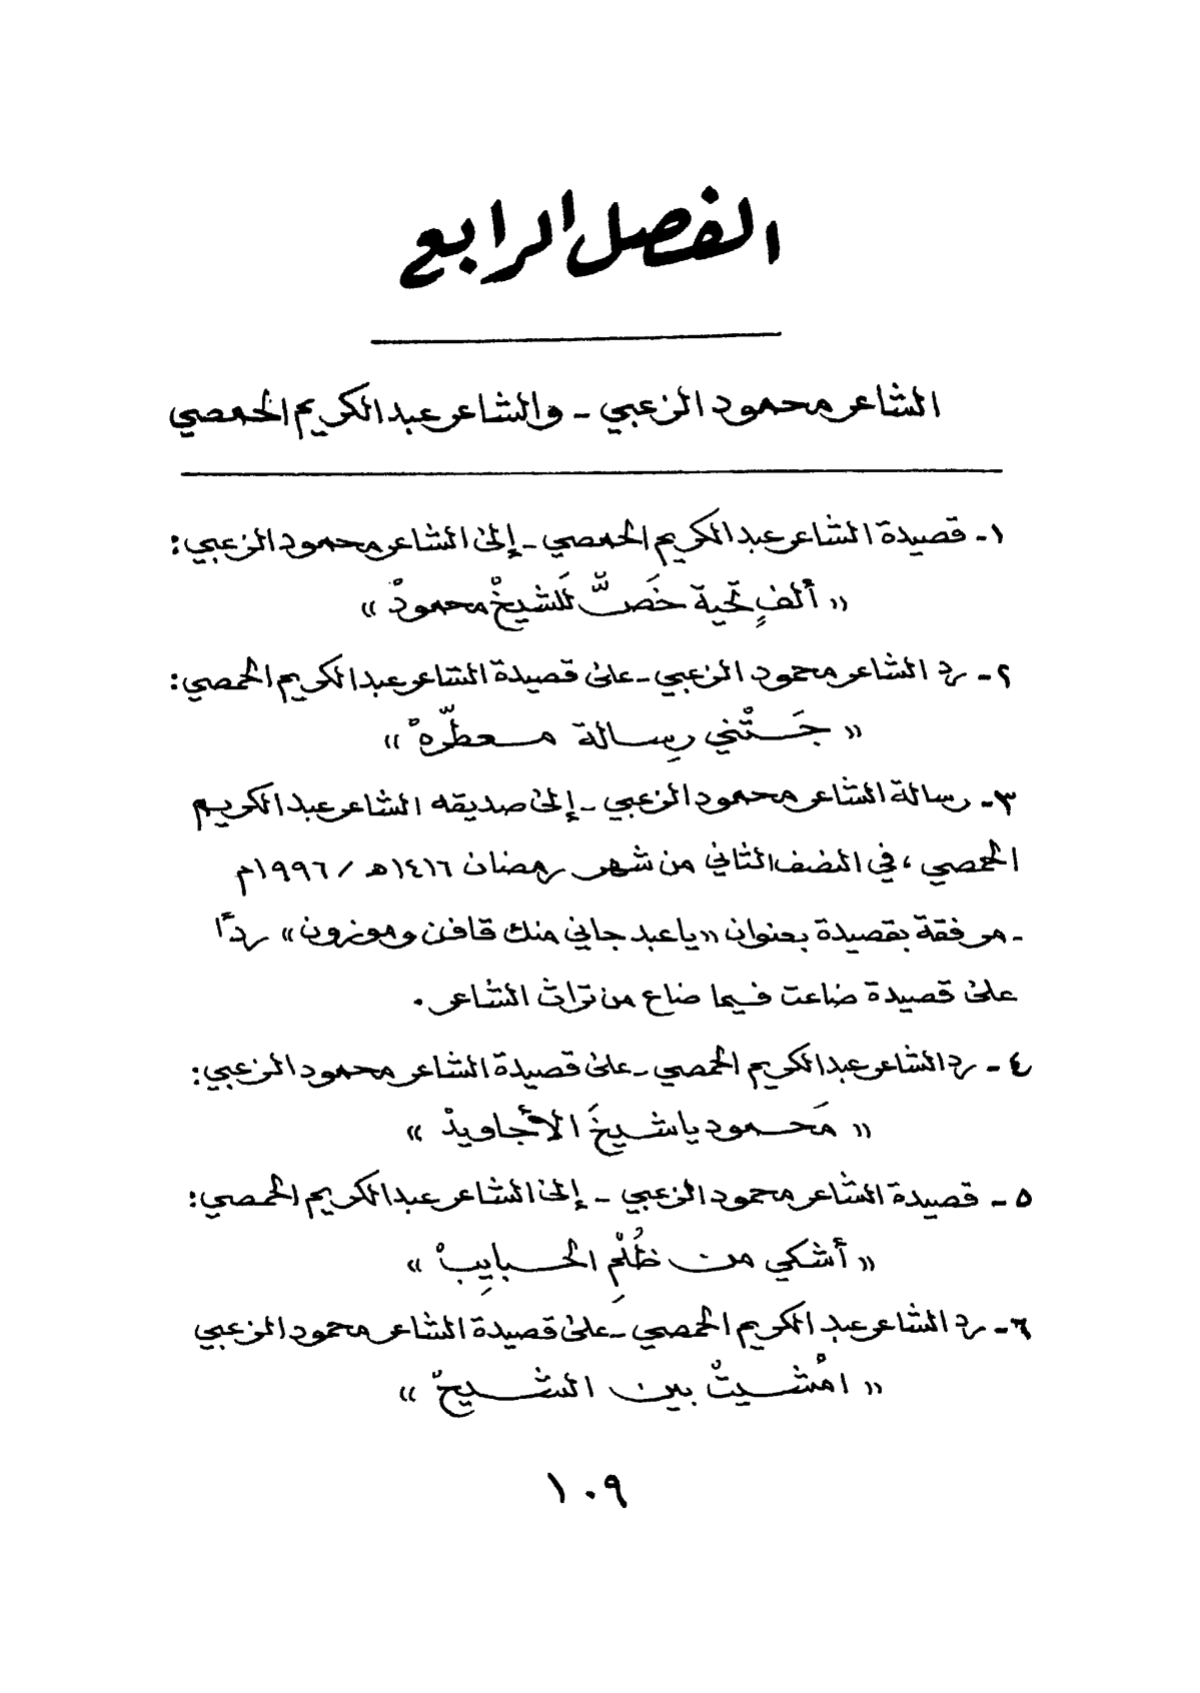 الفصل الرابع
الشاعر محمود الزعبي - والشاعر عبد الكريم الحمصي
١- قصيدة الشاعر عبد الكريم الحمصي - إلى الشاعر محمود الزعبي:
«ألفٍ تحية خَصّْ لَلشيخْ محمودْ»
٢- رد الشاعر محمود الزعبي - على قصيدة الشاعر عبد الكريم الحمصي:
«جَتْني رِسالة معطّرهْ»
٣- رسالة الشاعر محمود الزعبي - إلى صديقه الشاعر عبد الكريم
الحمصي، في النصف الثاني من شهر رمضان ١٤١٦ه / ١٩٩٦م
- مرفقة بقصيدة بعنوان «يا عبد جاني منك قافن وموزون» ردًا
على قصيدة ضاعت فيما ضاع من تراث الشاعر.
٤- رد الشاعر عبد الكريم الحمصي - على قصيدة الشاعر محمود الزعبي:
«مَحمود يا شيخَ الأجاويدْ»
٥- قصيدة الشاعر محمود الزعبي - إلى الشاعر عبد الكريم الحمصي:
«أشكي من ظُلْمِ الحبايِبْ»
٦- رد الشاعر عبد الكريم الحمصي - على قصيدة الشاعر محمود الزعبي
«امْشيتْ بين الشيحْ»
١٠٩